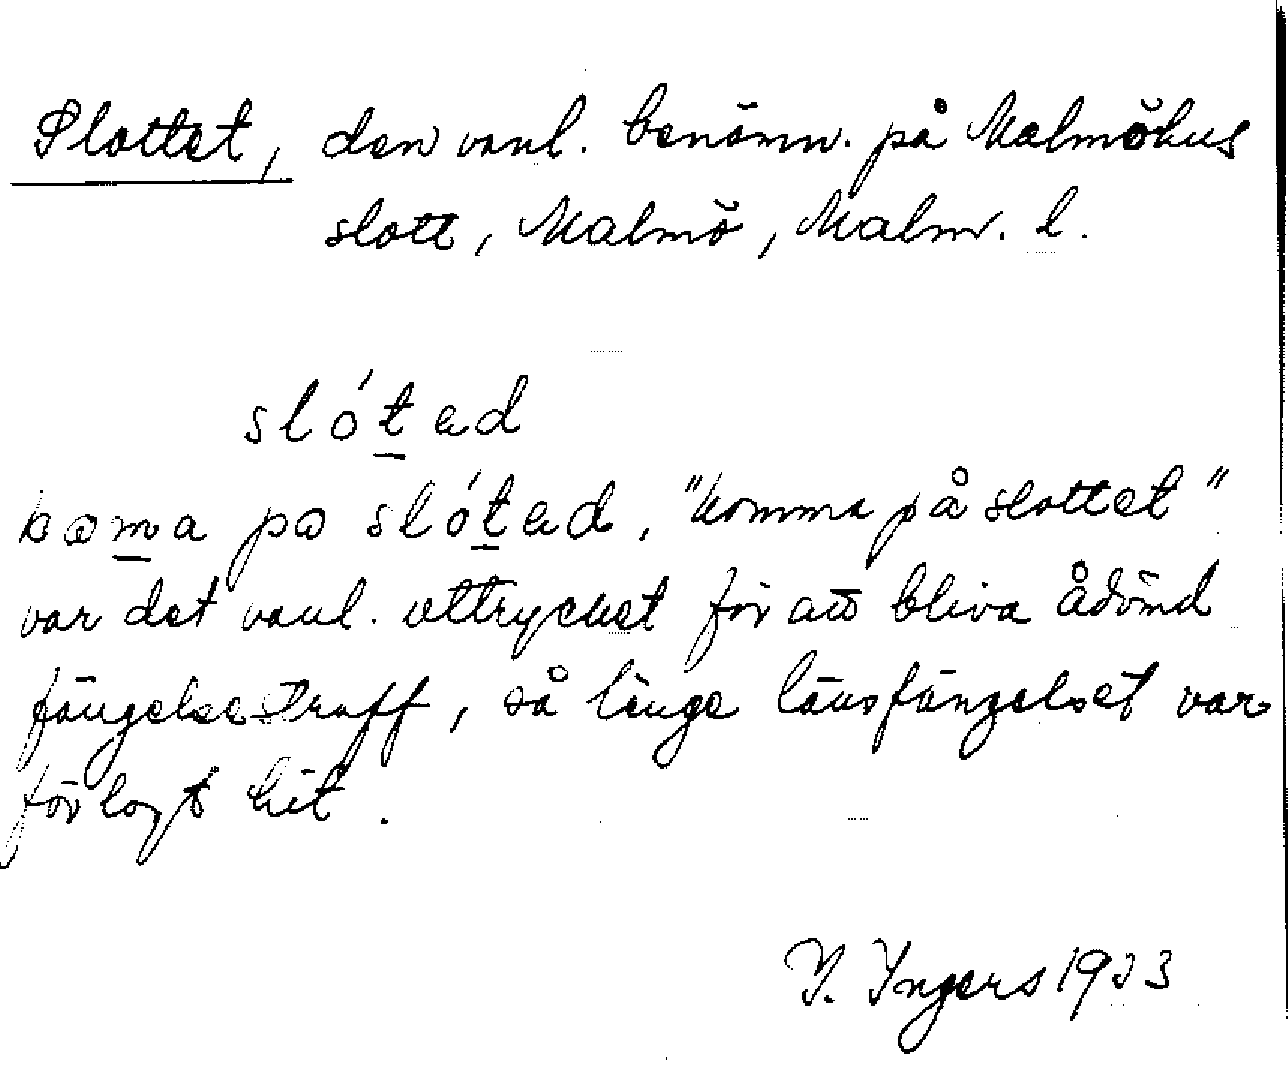 Slottet, den vanl. benämn. på Malmöhus
slott, Malmö, Malm. l.
slót̲ad
kɷm̲a pɷ slót̲ad, "komma på slottet"
var det vanl. uttrycket för att bliva ådömd
fängelsestraff, så länge länsfängelset var
förlagt hit.
I. Ingers 1933